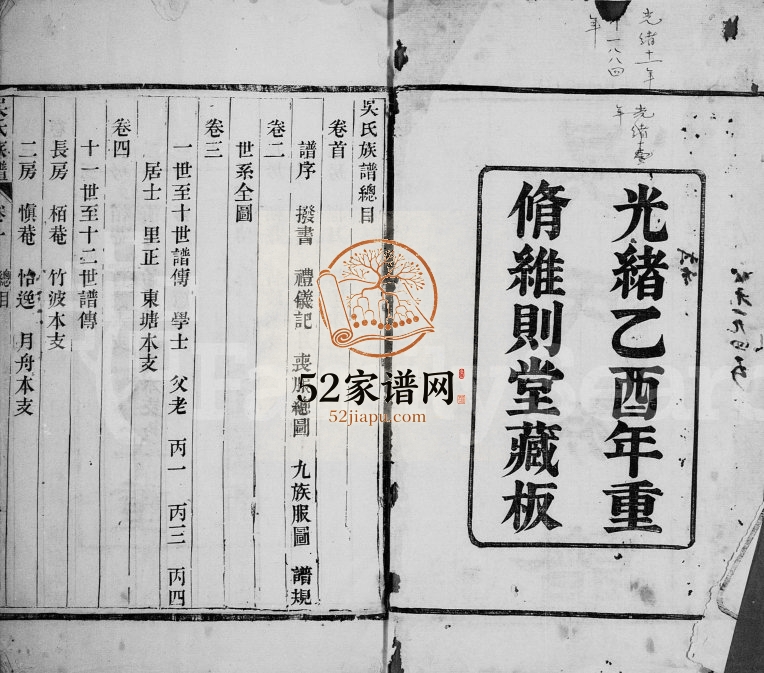 光緒十一年
一八八四
年
年光緒
光緒乙酉年重
脩維則堂藏板
吳氏族譜總目
卷首
譜序 撥書 禮儀記 喪服總圖 九族服圖 譜規
卷二
世系全圖
卷三
一世至十世譜傳 學士 父老 丙一 丙三 丙四
居士 里正 東塘本支
卷四
十一世至十二世譜傳
長房 栢菴 竹波本支
二房 愼菴 怡逸 月舟本支
吳氏族譜 總目
52家谱网
52jiapu.com